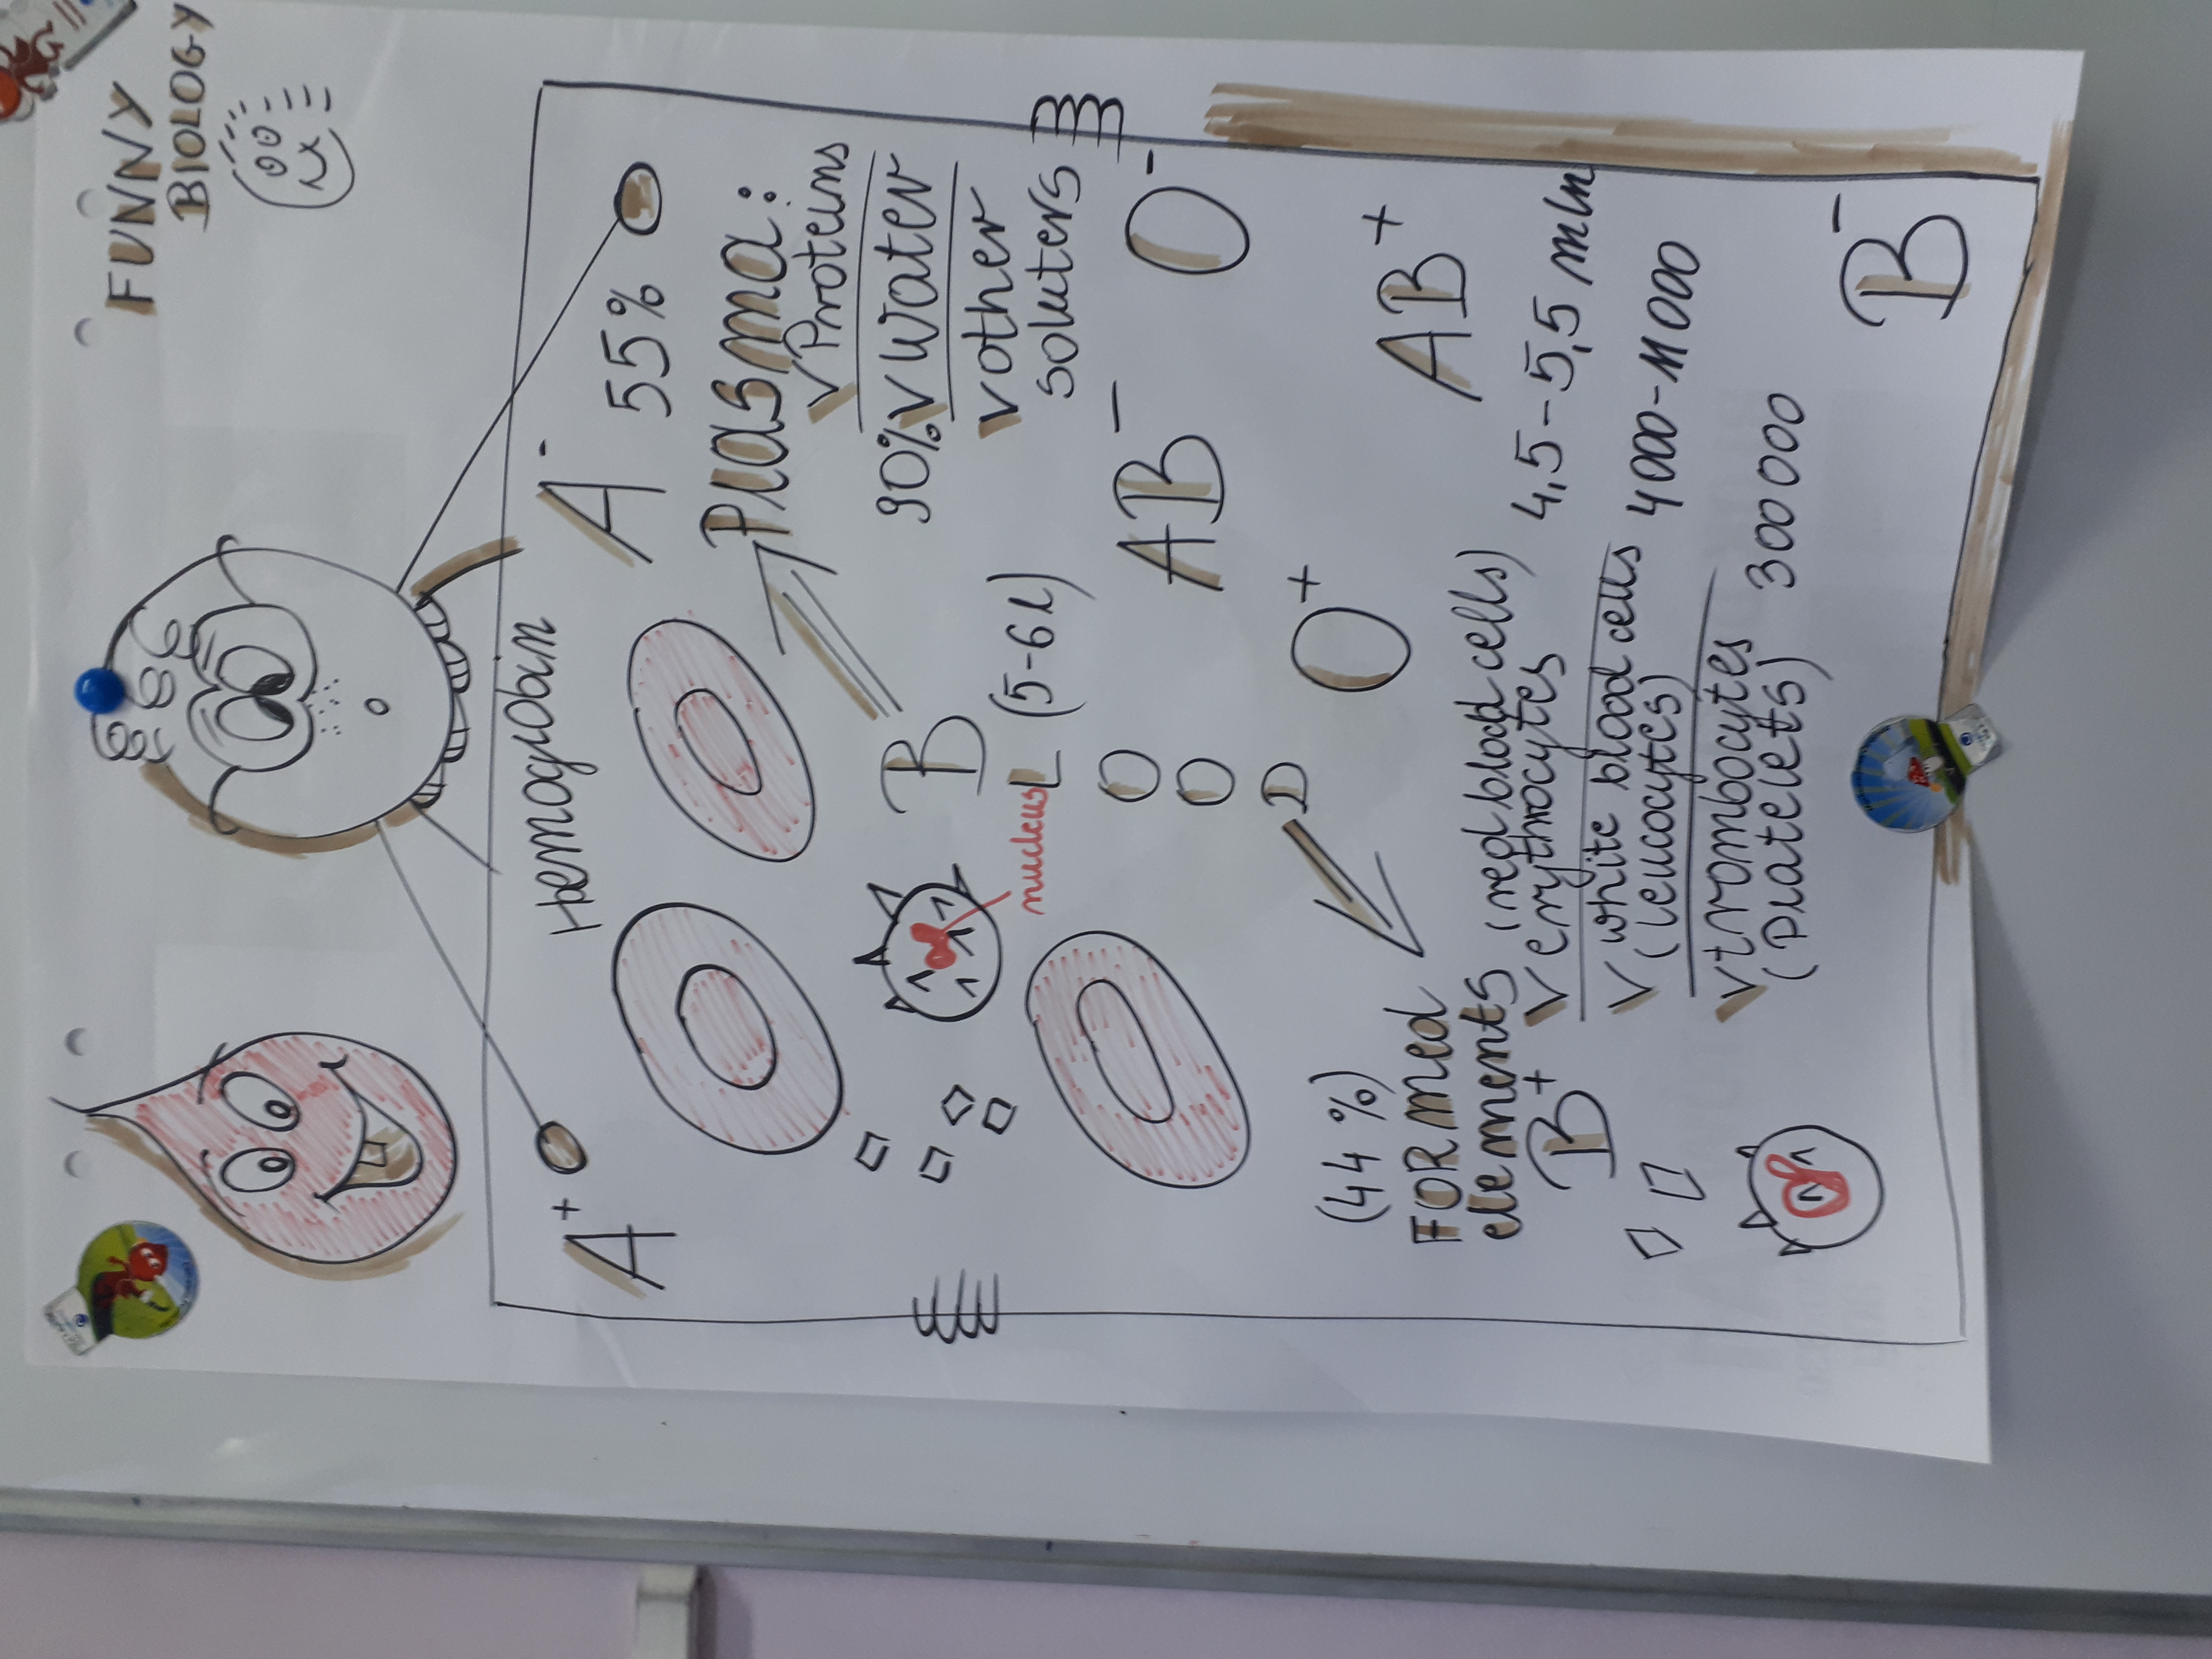 FUNNY
BIOLOGY
Hemoglobin
A+
A-
55%
Plasma:
V Proteins
90% V water
V other
soluters
B
L (5-6 l)
O
O
D
nucleus
AB-
O-
O+
AB+
(44%)
FORmed
elements
B+
(red blood cells)
V erythrocytes 4,5-5,5 mln
V white blood cells 4000-11000
(leucocytes)
V trombocytes
(platelets) 300000
B-